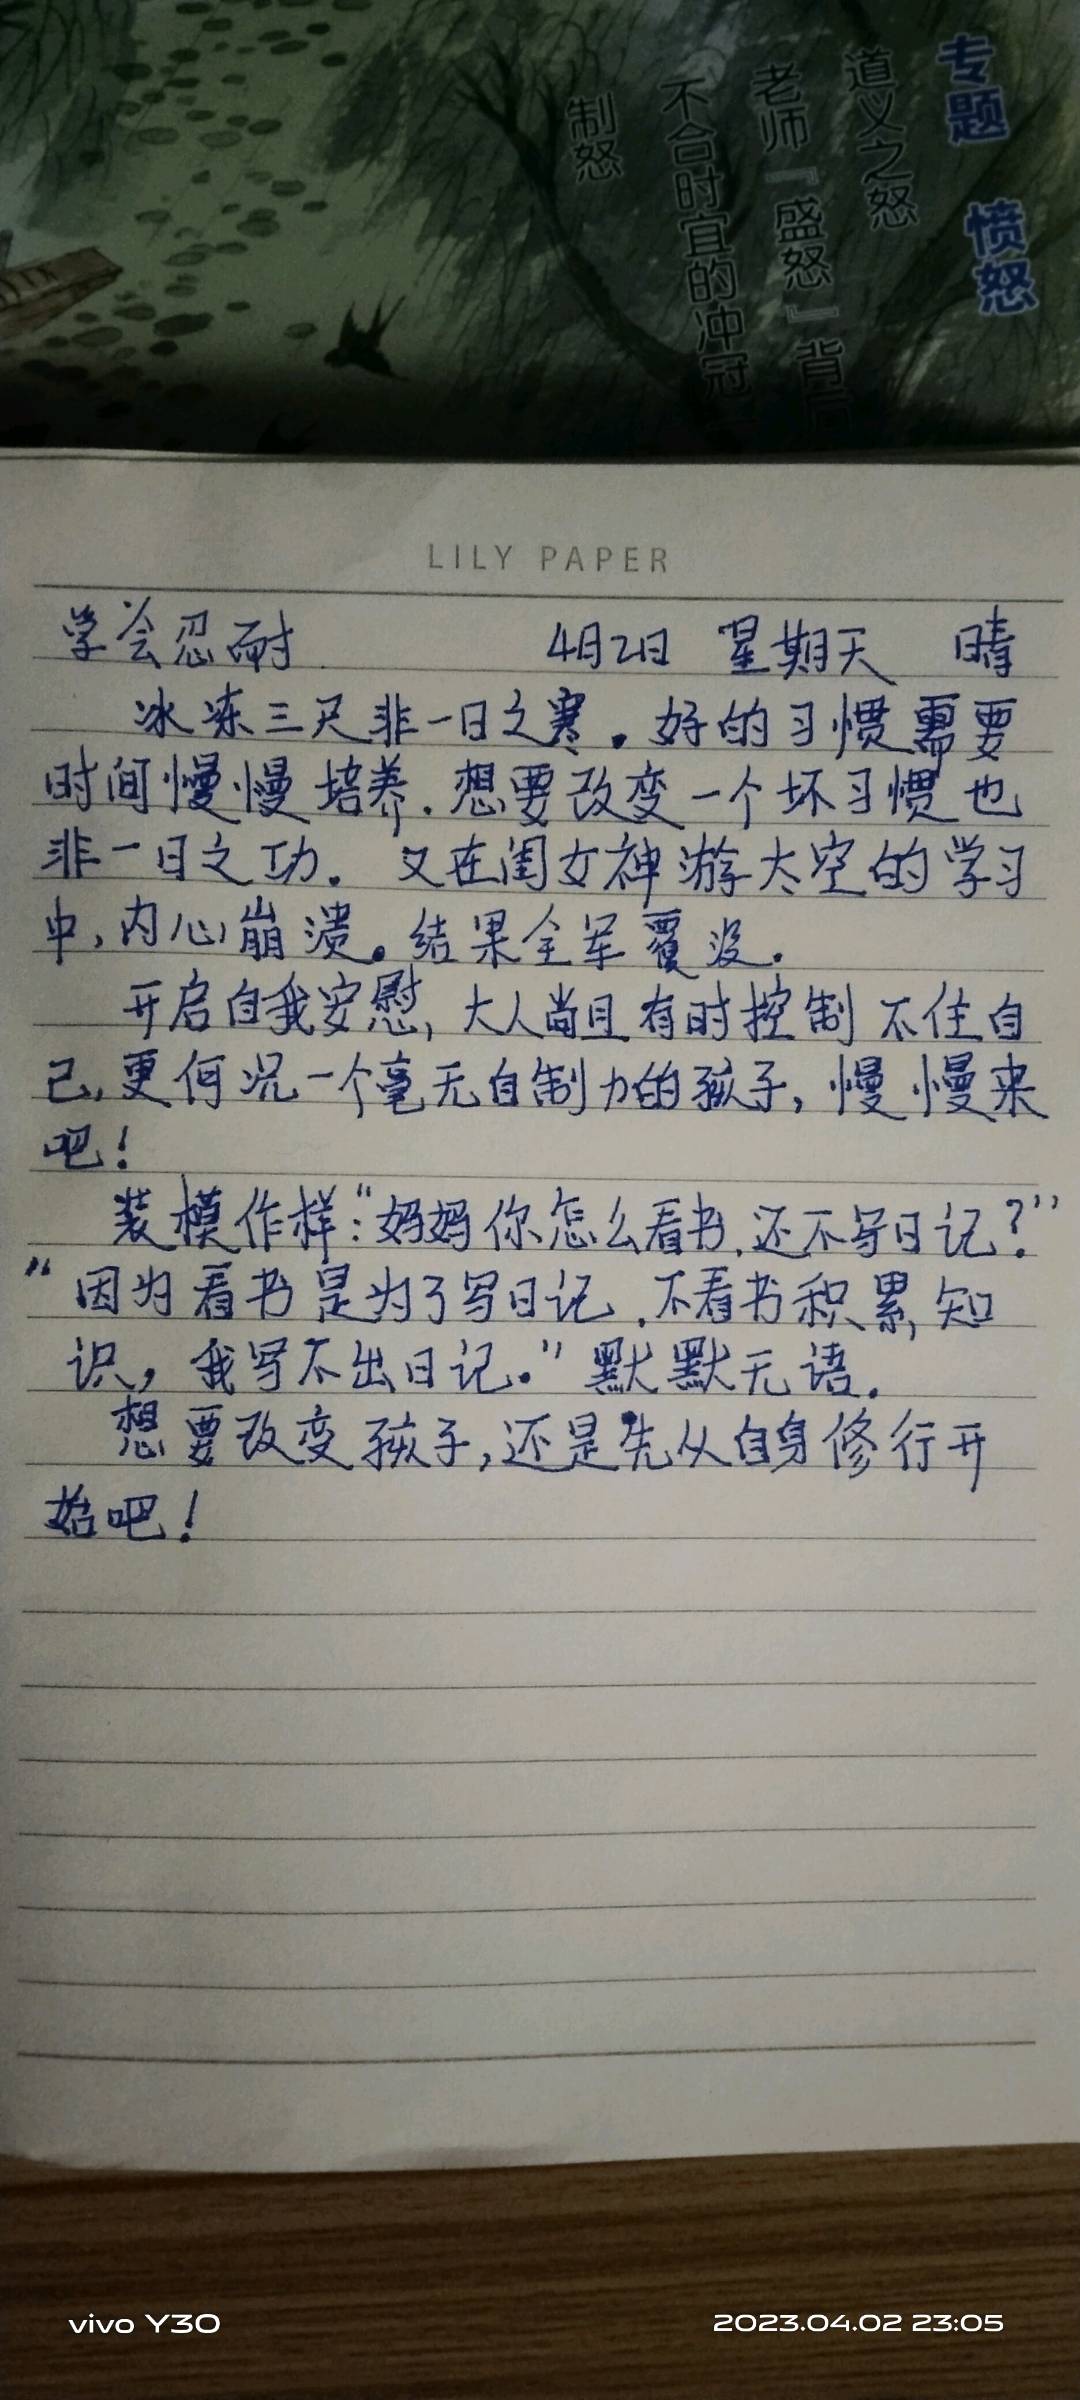 专题 愤怒
道义之怒
老师『盛怒』背后
不合时宜的冲冠
制怒
LILY PAPER
学会忍耐 4月2日 星期天 晴
冰冻三尺非一日之寒。好的习惯需要
时间慢慢培养.想要改变一个坏习惯也
非一日之功。又在闺女神游太空的学习
中,内心崩溃。结果全军覆没.
开启自我安慰,大人尚且有时控制不住自
己,更何况一个毫无自制力的孩子,慢慢来
吧!
装模作样:“妈妈你怎么看书,还不写日记?”
“因为看书是为了写日记.不看书积累,知
识,我写不出日记.”默默无语.
想要改变孩子,还是先从自身修行开
始吧!
vivo Y30
2023.04.02 23:05